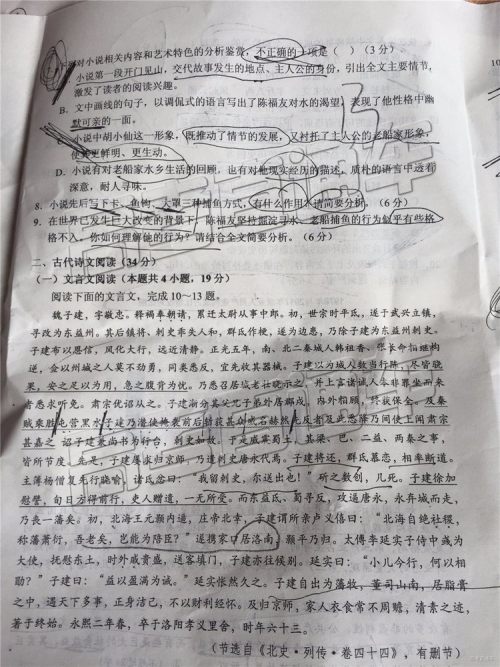 对小说相关内容和艺术特色的分析鉴赏，不正确的一项是（ ）（3 分）
小说第一段开门见山，交代故事发生的地点、主人公的身份，引出全文主要情节，
激发了读者的阅读兴趣。
B．文中画线的句子，以调侃式的语言写出了陈福友对水的渴望，表现了他性格中幽
默可亲的一面。
小说中胡小仙这一形象，既推动了情节的发展，又衬托了主人公的老船家形象，
使其更鲜明、更生动。
D．小说有对老船家水乡生活的回顾，也有对他现实经历的描述，质朴的语言中透着
深意，耐人寻味。
8．小说先后写下卡、鱼钩、大罩三种捕鱼方式，有什么作用 请简要分析。（6 分）
9．在世界已发生巨大改变的背景下，陈福友坚持 淀寻水、老船捕鱼的行为似乎有些格
格不入。你如何理解他的行为？请结合全文简要分析。（6 分）
二、古代诗文阅读（34 分）
（一）文言文阅读（本题共 4 小题，19 分）
阅读下面的文言文，完成 10～13 题。
魏子建，字敬忠。释褐奉朝请，累迁太尉从事中郎。初，世宗时平氐，遂于武兴立镇，
寻改为东益州。其后镇将、刺史乖失人和，群氐作梗，遂为边患，乃除子建为东益州刺史。
子建布以恩信，风化大行，远近清静。正光五年，南、北二秦城人韩祖香、张长命相继构
逆，佥以州城之人莫不劲勇，同类悉反，宜先收其器械。子建以为城人数当行阵，尽皆骁
果，安之足以为用，急之腹背为忧。乃悉召居城老壮晓示之，并上言诸城人 非罪坐而来
者悉求听免。肃宗优诏从之。子建渐分其父兄子弟外居郡戍，内外相顾，终获保全。及秦
贼乘胜，屯营黑水，子建乃潜使掩袭，前后斩获甚众，威名赫然，先反者及此悉降。乃间使上闻，肃宗
甚嘉之，诏子建兼尚书为行台，刺史如故。于是威震蜀土，其梁、巴、二益、两秦之事，
皆所节度。先是，子建屡求归京师，乃遣刺史唐永代焉。子建将还，群氐慕恋，相率断道。
主簿杨僧复先行晓喻，诸氐忿曰：“我留刺史，尔送出也！”斫之数创，几死。子建徐加
慰譬，旬日方得前行，吏人赠遗，一无所受。而东益氐、蜀寻反，攻逼唐永，永弃城而走，
乃丧一藩矣。初，北海王元颢内逼，庄帝北幸，子建谓所亲卢义僖曰：“北海自绝社稷，
称藩萧衍，吾老矣，岂能为陪臣？”遂携家口居洛南，颢平乃归。太傅李延实子侍中彧为
大使，抚慰东土，时外戚贵盛，送客填门，子建亦往候别。延实曰：“小儿今行，何以相
勖？”子建曰：“益以盈满为诫。”延实怅然久之。子建自出为藩牧，董司山南，居脂膏
之中，遇天下多事，正身洁己，不以财利经怀。及归京师，家人衣食常不周赡，清素之迹，
著于终始。永熙二年春，卒于洛阳孝义里舍，时年六十三。
（节选自《北史·列传·卷四十四》，有删节）